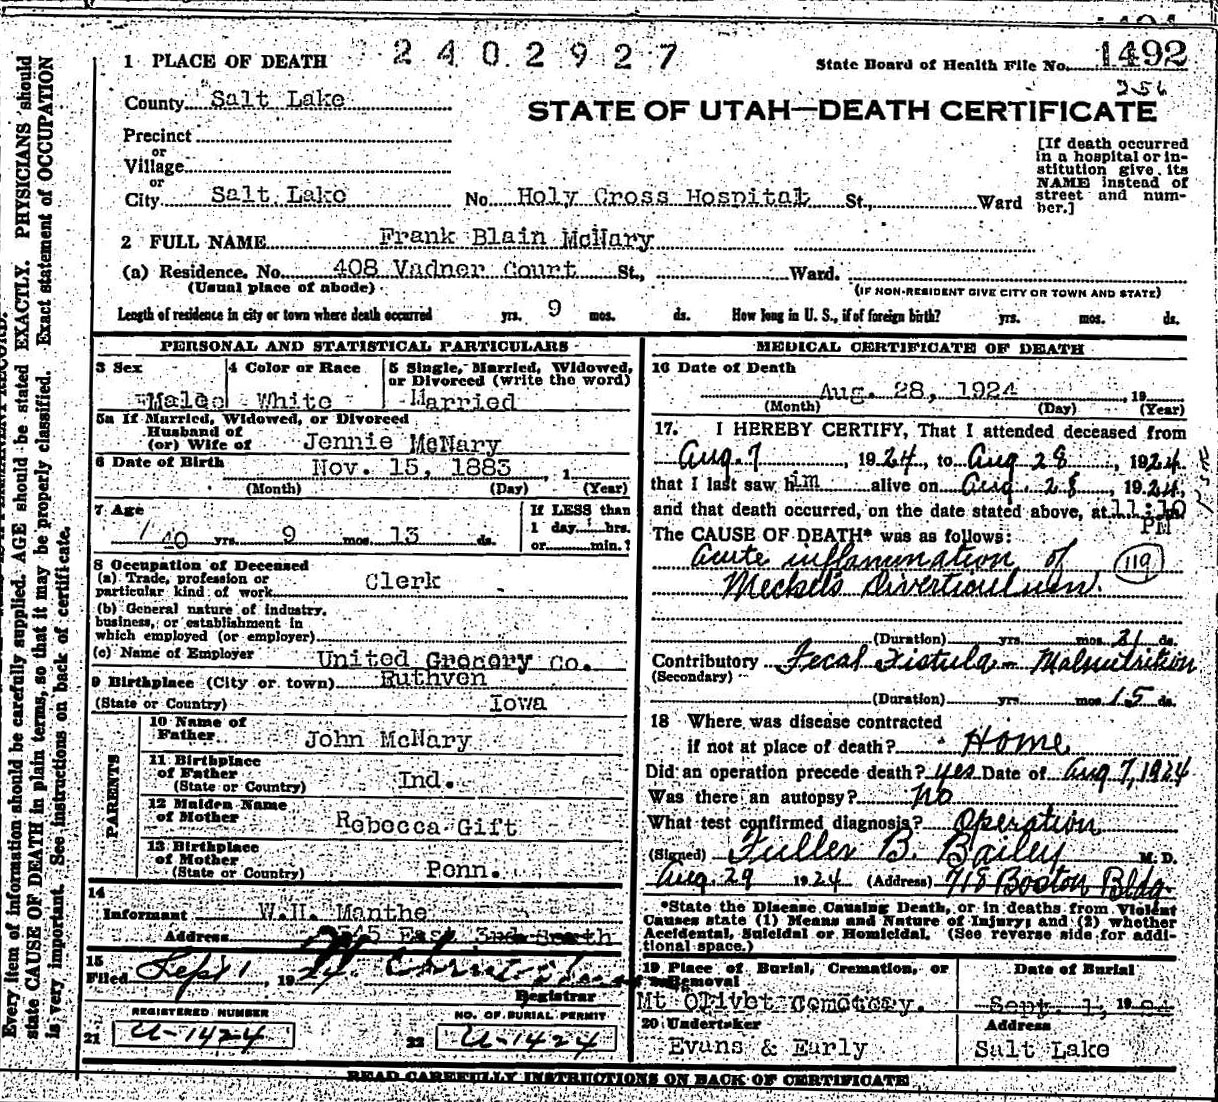 2402927
State Board of Health File No. 1492
256
1 PLACE OF DEATH
County Salt Lake
STATE OF UTAH—DEATH CERTIFICATE
Precinct
or
Village
or
City Salt Lake No. Holy Cross Hospital St., Ward
[If death occurred
in a hospital or in-
stitution give its
NAME instead of
street and num-
ber.]
2 FULL NAME Frank Blain McNary
(a) Residence. No. 408 Vadner Court St., Ward.
(Usual place of abode)
(IF NON-RESIDENT GIVE CITY OR TOWN AND STATE)
Length of residence in city or town where death occurred yrs. 9 mos. ds. How long in U. S., if of foreign birth? yrs. mos. ds.
PERSONAL AND STATISTICAL PARTICULARS
3 Sex
Male
4 Color or Race
White
5 Single, Married, Widowed,
or Divorced (write the word)
Married
5a If Married, Widowed, or Divorced
Husband of
(or) Wife of Jennie McNary
6 Date of Birth Nov. 15, 1883, 1
(Month) (Day) (Year)
7 Age
40 yrs. 9 mos. 13 ds.
If LESS than
1 day hrs.
or min.?
8 Occupation of Deceased
(a) Trade, profession or
particular kind of work Clerk
(b) General nature of industry,
business, or establishment in
which employed (or employer)
(c) Name of Employer United Grocery Co.
9 Birthplace (City or town) Ruthven
(State or Country) Iowa
PARENTS
10 Name of
Father John McNary
11 Birthplace
of Father
(State or Country) Ind.
12 Maiden Name
of Mother Rebecca Gift
13 Birthplace
of Mother
(State or Country) Penn.
14
Informant W.H. Manthe
Address 45 East 3nd South
15
Filed Sept 1, 1924
Registrar
REGISTERED NUMBER
21 U-1424
NO. OF BURIAL PERMIT
22 U-1424
MEDICAL CERTIFICATE OF DEATH
16 Date of Death
Aug. 28, 1924, 19
(Month) (Day) (Year)
17. I HEREBY CERTIFY, That I attended deceased from
Aug. 7, 1924, to Aug 28, 1924
that I last saw him alive on Aug. 28, 1924,
and that death occurred, on the date stated above, at 11:10
PM
The CAUSE OF DEATH* was as follows:
Acute inflammation of
Meckel's Diverticulum.
119
(Duration) yrs. mos. 21 ds.
Contributory Fecal Fistula - Malnutrition
(Secondary)
(Duration) yrs. mos. 15 ds.
18 Where was disease contracted
if not at place of death? Home
Did an operation precede death? yes Date of Aug 7, 1924
Was there an autopsy? no
What test confirmed diagnosis? Operation
(Signed) Fuller B. Bailey M. D.
Aug. 29 1924 (Address) 718 Boston Bldg.
*State the Disease Causing Death, or in deaths from Violent
Causes state (1) Means and Nature of Injury; and (2) whether
Accidental, Suicidal or Homicidal. (See reverse side for addi-
tional space.)
19 Place of Burial, Cremation, or
Removal
Mt Olivet Cemetery.
Date of Burial
Sept. 1, 1924
20 Undertaker
Evans & Early
Address
Salt Lake
READ CAREFULLY INSTRUCTIONS ON BACK OF CERTIFICATE
Every item of information should be carefully supplied. AGE should be stated EXACTLY. PHYSICIANS should
state CAUSE OF DEATH in plain terms, so that it may be properly classified. Exact statement of OCCUPATION
is very important. See instructions on back of certificate.